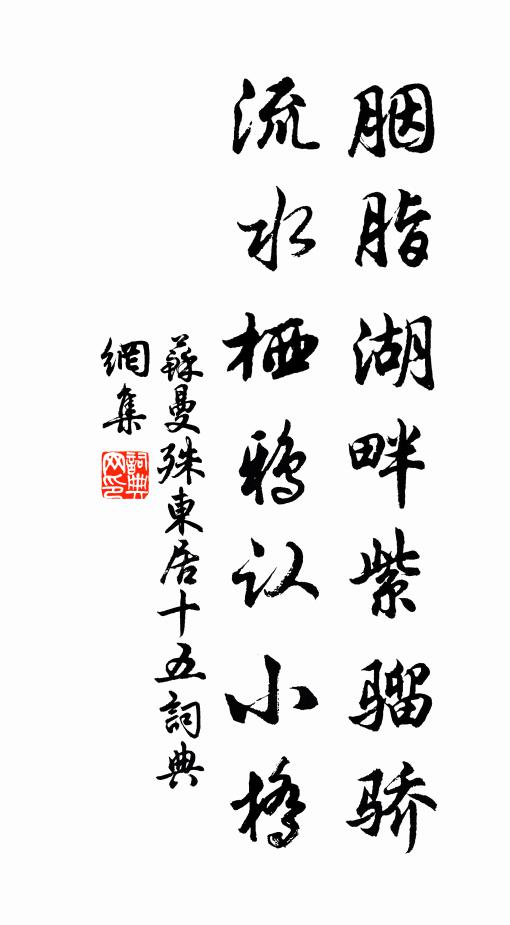 胭脂湖畔紫骝骄
流水栖鸦认小橋
蘇曼殊東居十五詞典
網集
詞典网印